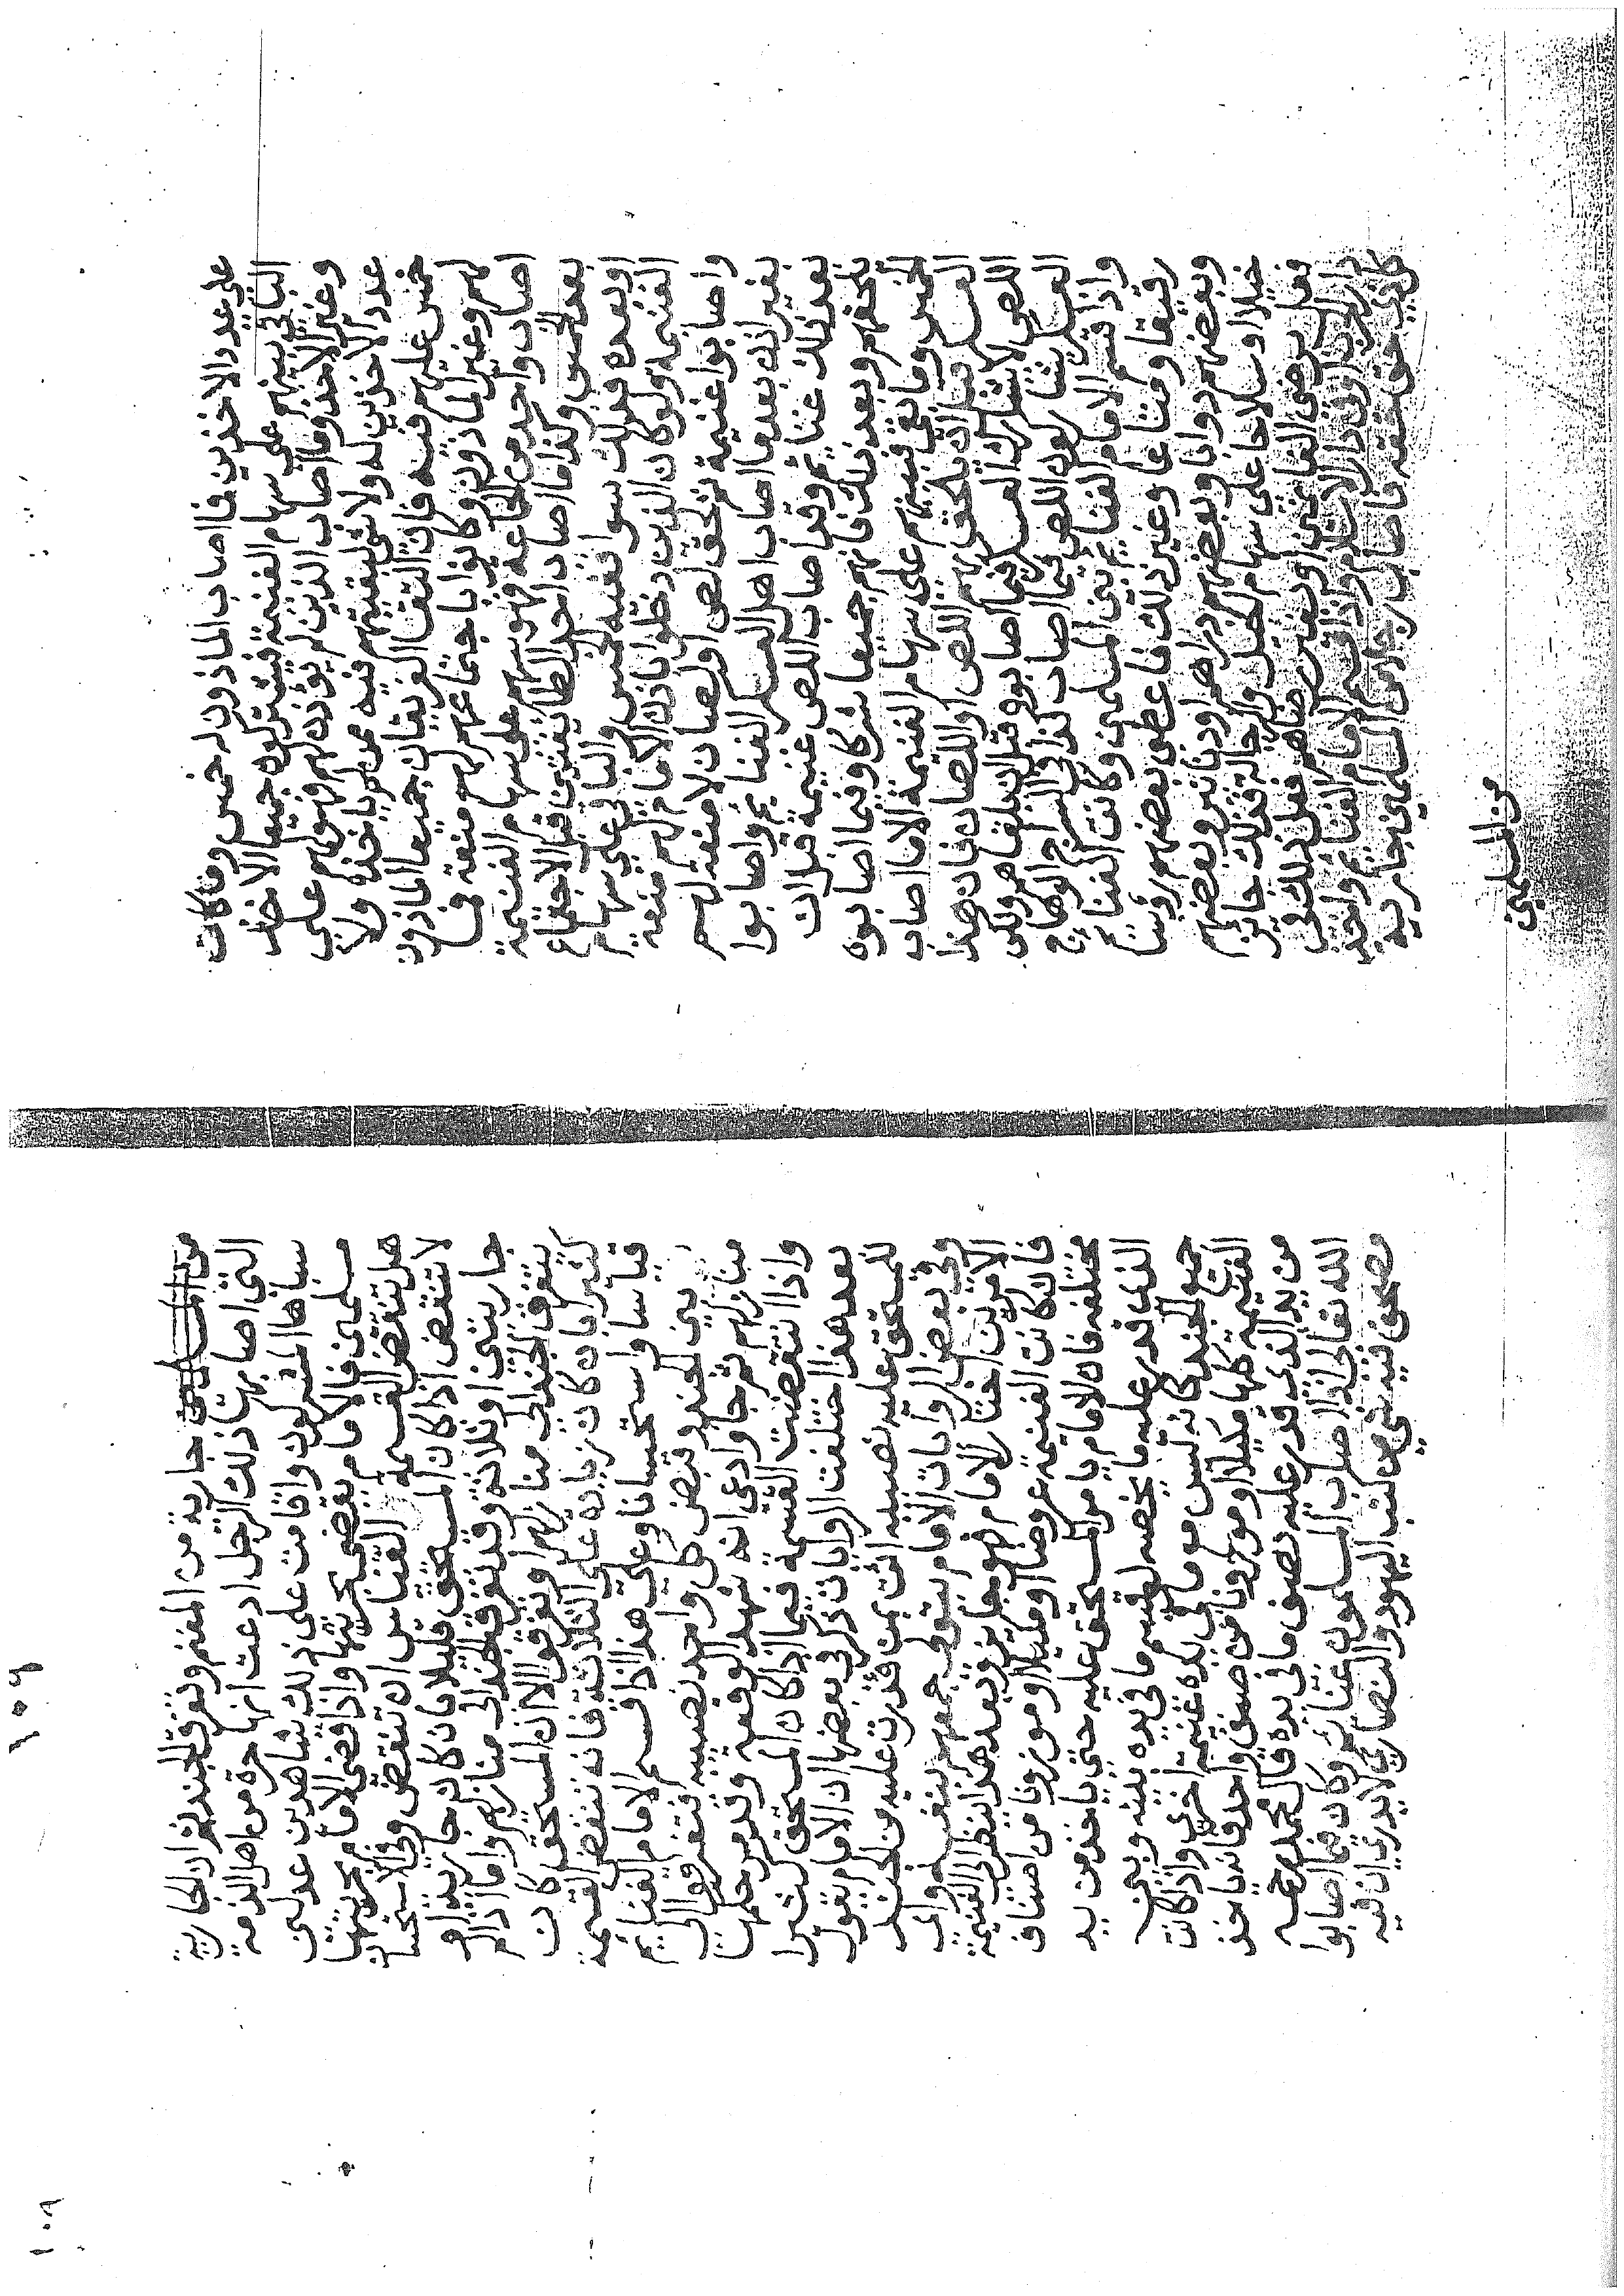 على عدد الاخذين فما اصاب الماذون له خمس وما كانت
الباقي بينهم على سهام الغنيمة فيشتركون جميعا الاخذ
وغير الاخذ وما اصاب الذين لم يؤذن لهم فهو لهم على
عدد الاخذين له ولا شي لبقيتهم فيه ممن لم ياخذه ولا
خمس عليهم فيه فان التقا الفريقان جميعا الماذون
لهم وغير الماذون وكانوا باجتماعهم لهم منعة فما
اصاب واحد من الجماعة فهو بينهم على سهام الغنيمة
بعد الخمس وكذا ما اصاب احد الطايفتين قبل الاجتماع
او بعده فذلك سوا ففيه الخمس والباقي على سهام
الغنيمة ولو كان الذين دخلوا باذن الامام لهم منعة
واصابوا غنيمة ثم لحق لص او لصان لا منعة لهم
بغير اذن بعد ما اصاب اهل العسكر الغنايم واصابوا
بعد ذلك غنايم وقد اصاب اللص غنيمة قبل ان
يلحقهم وبعد ذلك فانهم جميعا شركا وفيما اصابوه
الخمس وما بقي فبينهم على سهام الغنيمة الا ما اصاب
العسكر قبل ان يلحق بهم اللص او اللصان فان هذا
اللص لا يشارك العسكر فيما اصابوه قبل ان يلقاهم ولكن
العسكر يشاركون اللص فيما اصاب كذا في السراج الوهاج
واذا قسم الامام الغنايم بين المسلمين وكانت الغنايم
رقيقا ومتاعا وغير ذلك فاعطى بعضهم
وبعضهم دوابا وبعضهم دراهم او دنانير وبعضهم
خيلا او سلاحا على سهام الخيل والرجالة فذلك جايز
برضى الغانمين او بغير رضاهم فعل ذلك في
دار الحرب او في دار الاسلام واذا قسم الامام الغنايم واخذ
كل ذي حق حقه فاصاب رجلا من المسلمين جارية
من المسلمين
١٥٦
جارية من المغنم وتفرق الجند ثم ان الجارية
التي اصابها ذلك الرجل ادعت انها حرة من اهل الذمة
سباها المشركون واقامت على ذلك شاهدين عدلين
مسلمين فالامام يقضي بحريتها واذا قضى الامام بحريتها
هل تنتقض القسمة القياس ان تنتقض وفي الاستحسان
لا تنتقض اذا كان المستحق قليلا بان كان جارية او
جاريتين او ثلاثة وقد تفرق الجند الى منازلهم واما اذا لم
يتفرق الجند الى منازلهم او تفرقوا الا ان المستحق كان
كثيرا بان كان زيادة على الثلاثة فانه تنتقض القسمة
قياسا واستحسانا وعلى هذا اذا قسم الامام الغنايم
بين الجند وقبض كل واحد نصيبه فتفرقوا الى
منازلهم ثم جا وادعى انه شهد الوقعة وقدم رجلين
واذا انتقضت القسمة فيما اذا كان المستحق كثيرا
بعد هذا اختلفت الروايات ذكر في بعضها ان الامام يقول
للمستحق عليه نصيبه ائت بمن قدرت عليه من الجند
وفي بعض الروايات الامام يتولى جمعهم بنفسه واي
الامرين اختار الامام فهو جايز وبعد هذا ينظر الى الغنيمة
فان كانت الغنيمة عروضا او مكيلا او موزونا من اصناف
مختلفه فان الامام يامر المستحق عليه حتى ياخذ من يد
الذي قدر عليه ما يخصه لو قسم ما في يده بينه وبين
جميع الجند كانه ليس معهم ما في يده غنيمة اخرى واذا كانت
الغنيمة كلها مكيلا او موزونا من صنف واحد فانه ياخذ
من يد الذي قدر عليه نصف ما في يده قال محمد رحمه
الله تعالى اذا اصاب المسلمون غنايم وكان فيما اصابوا
مصحف فيه شي من كتب اليهود والنصارى لا يدرى ان فيه
١٠٩